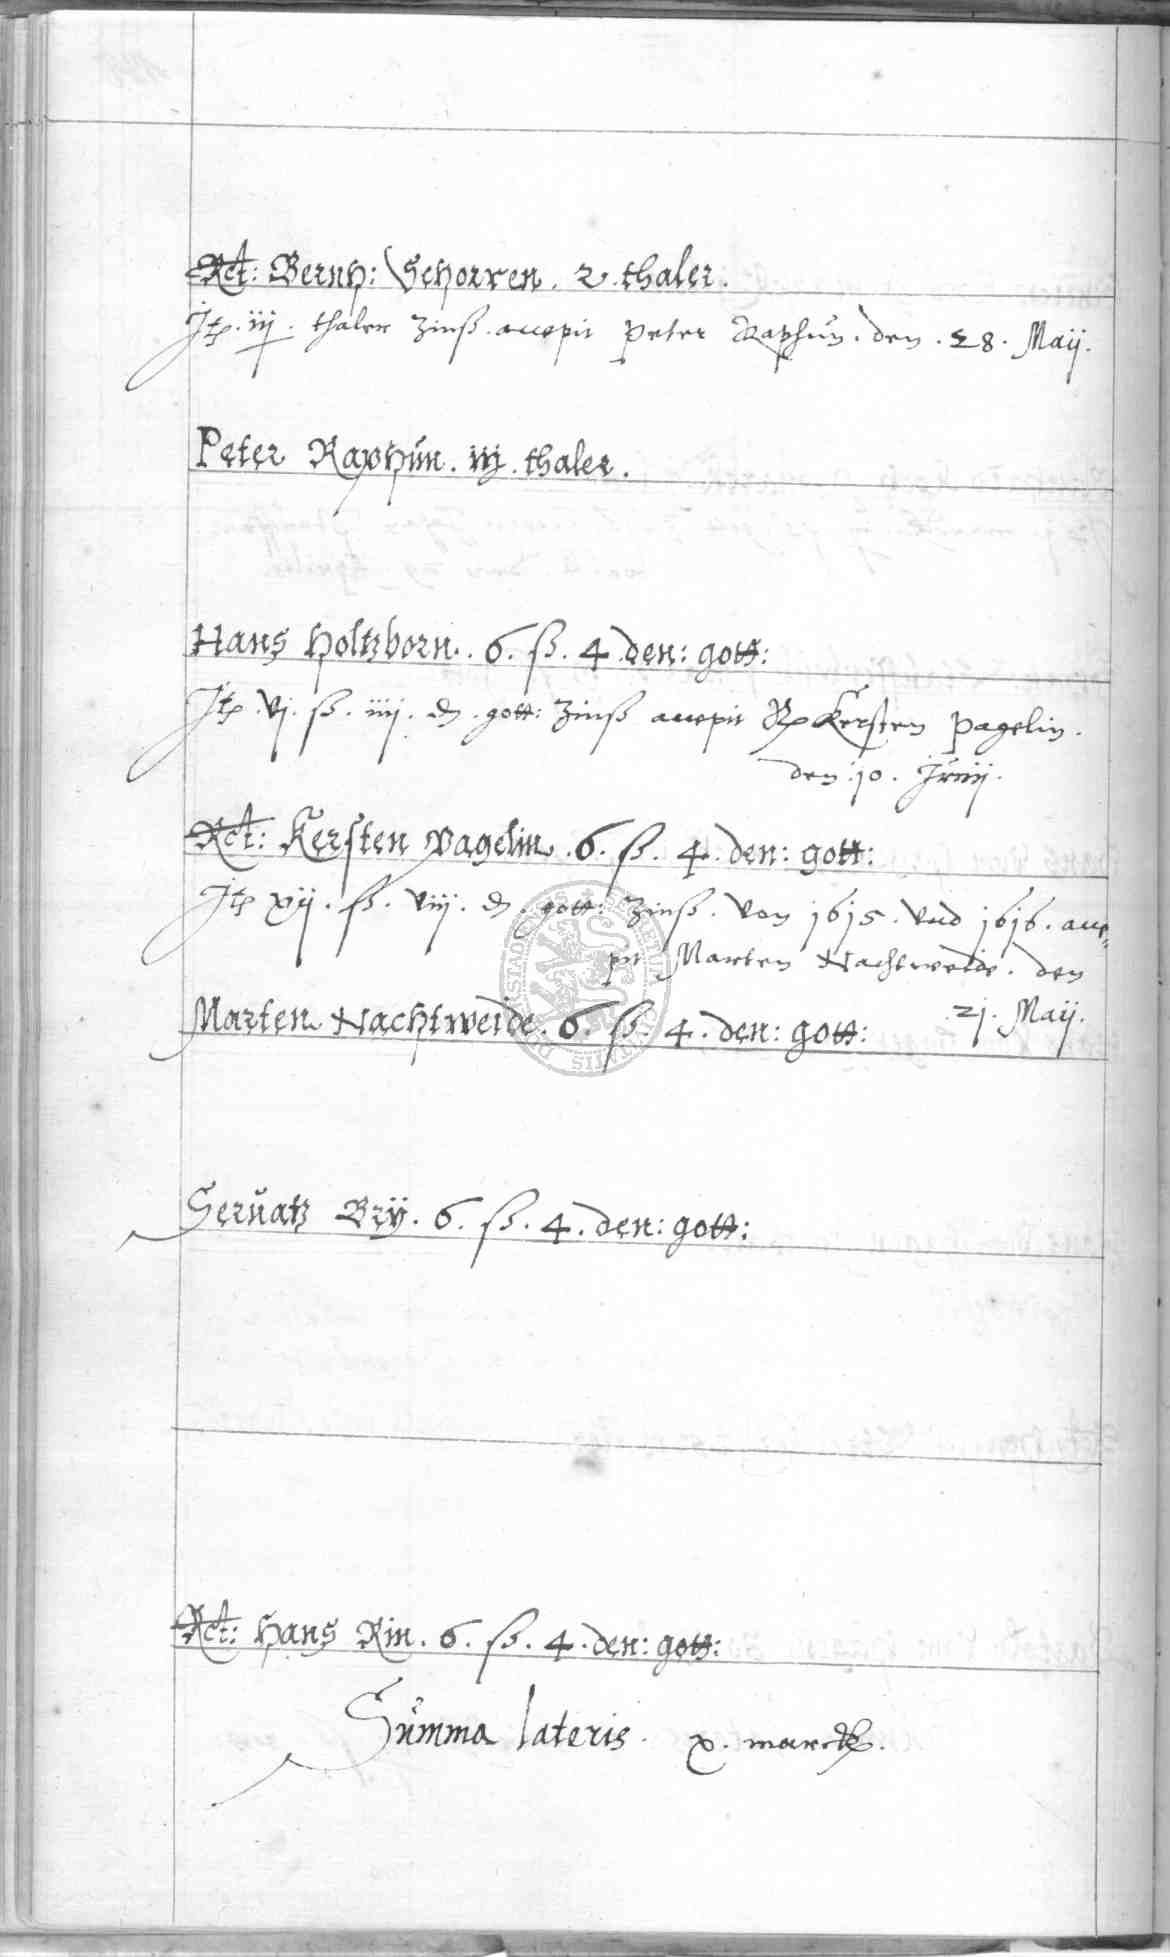 Rct: Bernh: Schorren. 2. thaler.
Itp. iij. thaler Zinß. accepit Peter Raphun. den. 28. Maij.
Peter Raphun. iij. thaler.
Hans Holtzborn. 6. ß. 4. den: gott:
Itp. vj. ß. iiij. d. gott: Zinß accepit Kersten Pagelin.
den. 10. Junij.
Rct: Kersten Pagelin. 6. ß. 4. den: gott:
Itp xij. ß. viij. d. gott: Zinß. von 1615. vnd 1616. acce=
pit Marten Nachtweide. den
21. Maij.
Marten Nachtweide. 6. ß. 4. den: gott:
Seruatz Brÿ. 6. ß. 4. den: gott:
Rct: Hans Rin. 6. ß. 4. den: gott:
Summa lateris. x. marck.